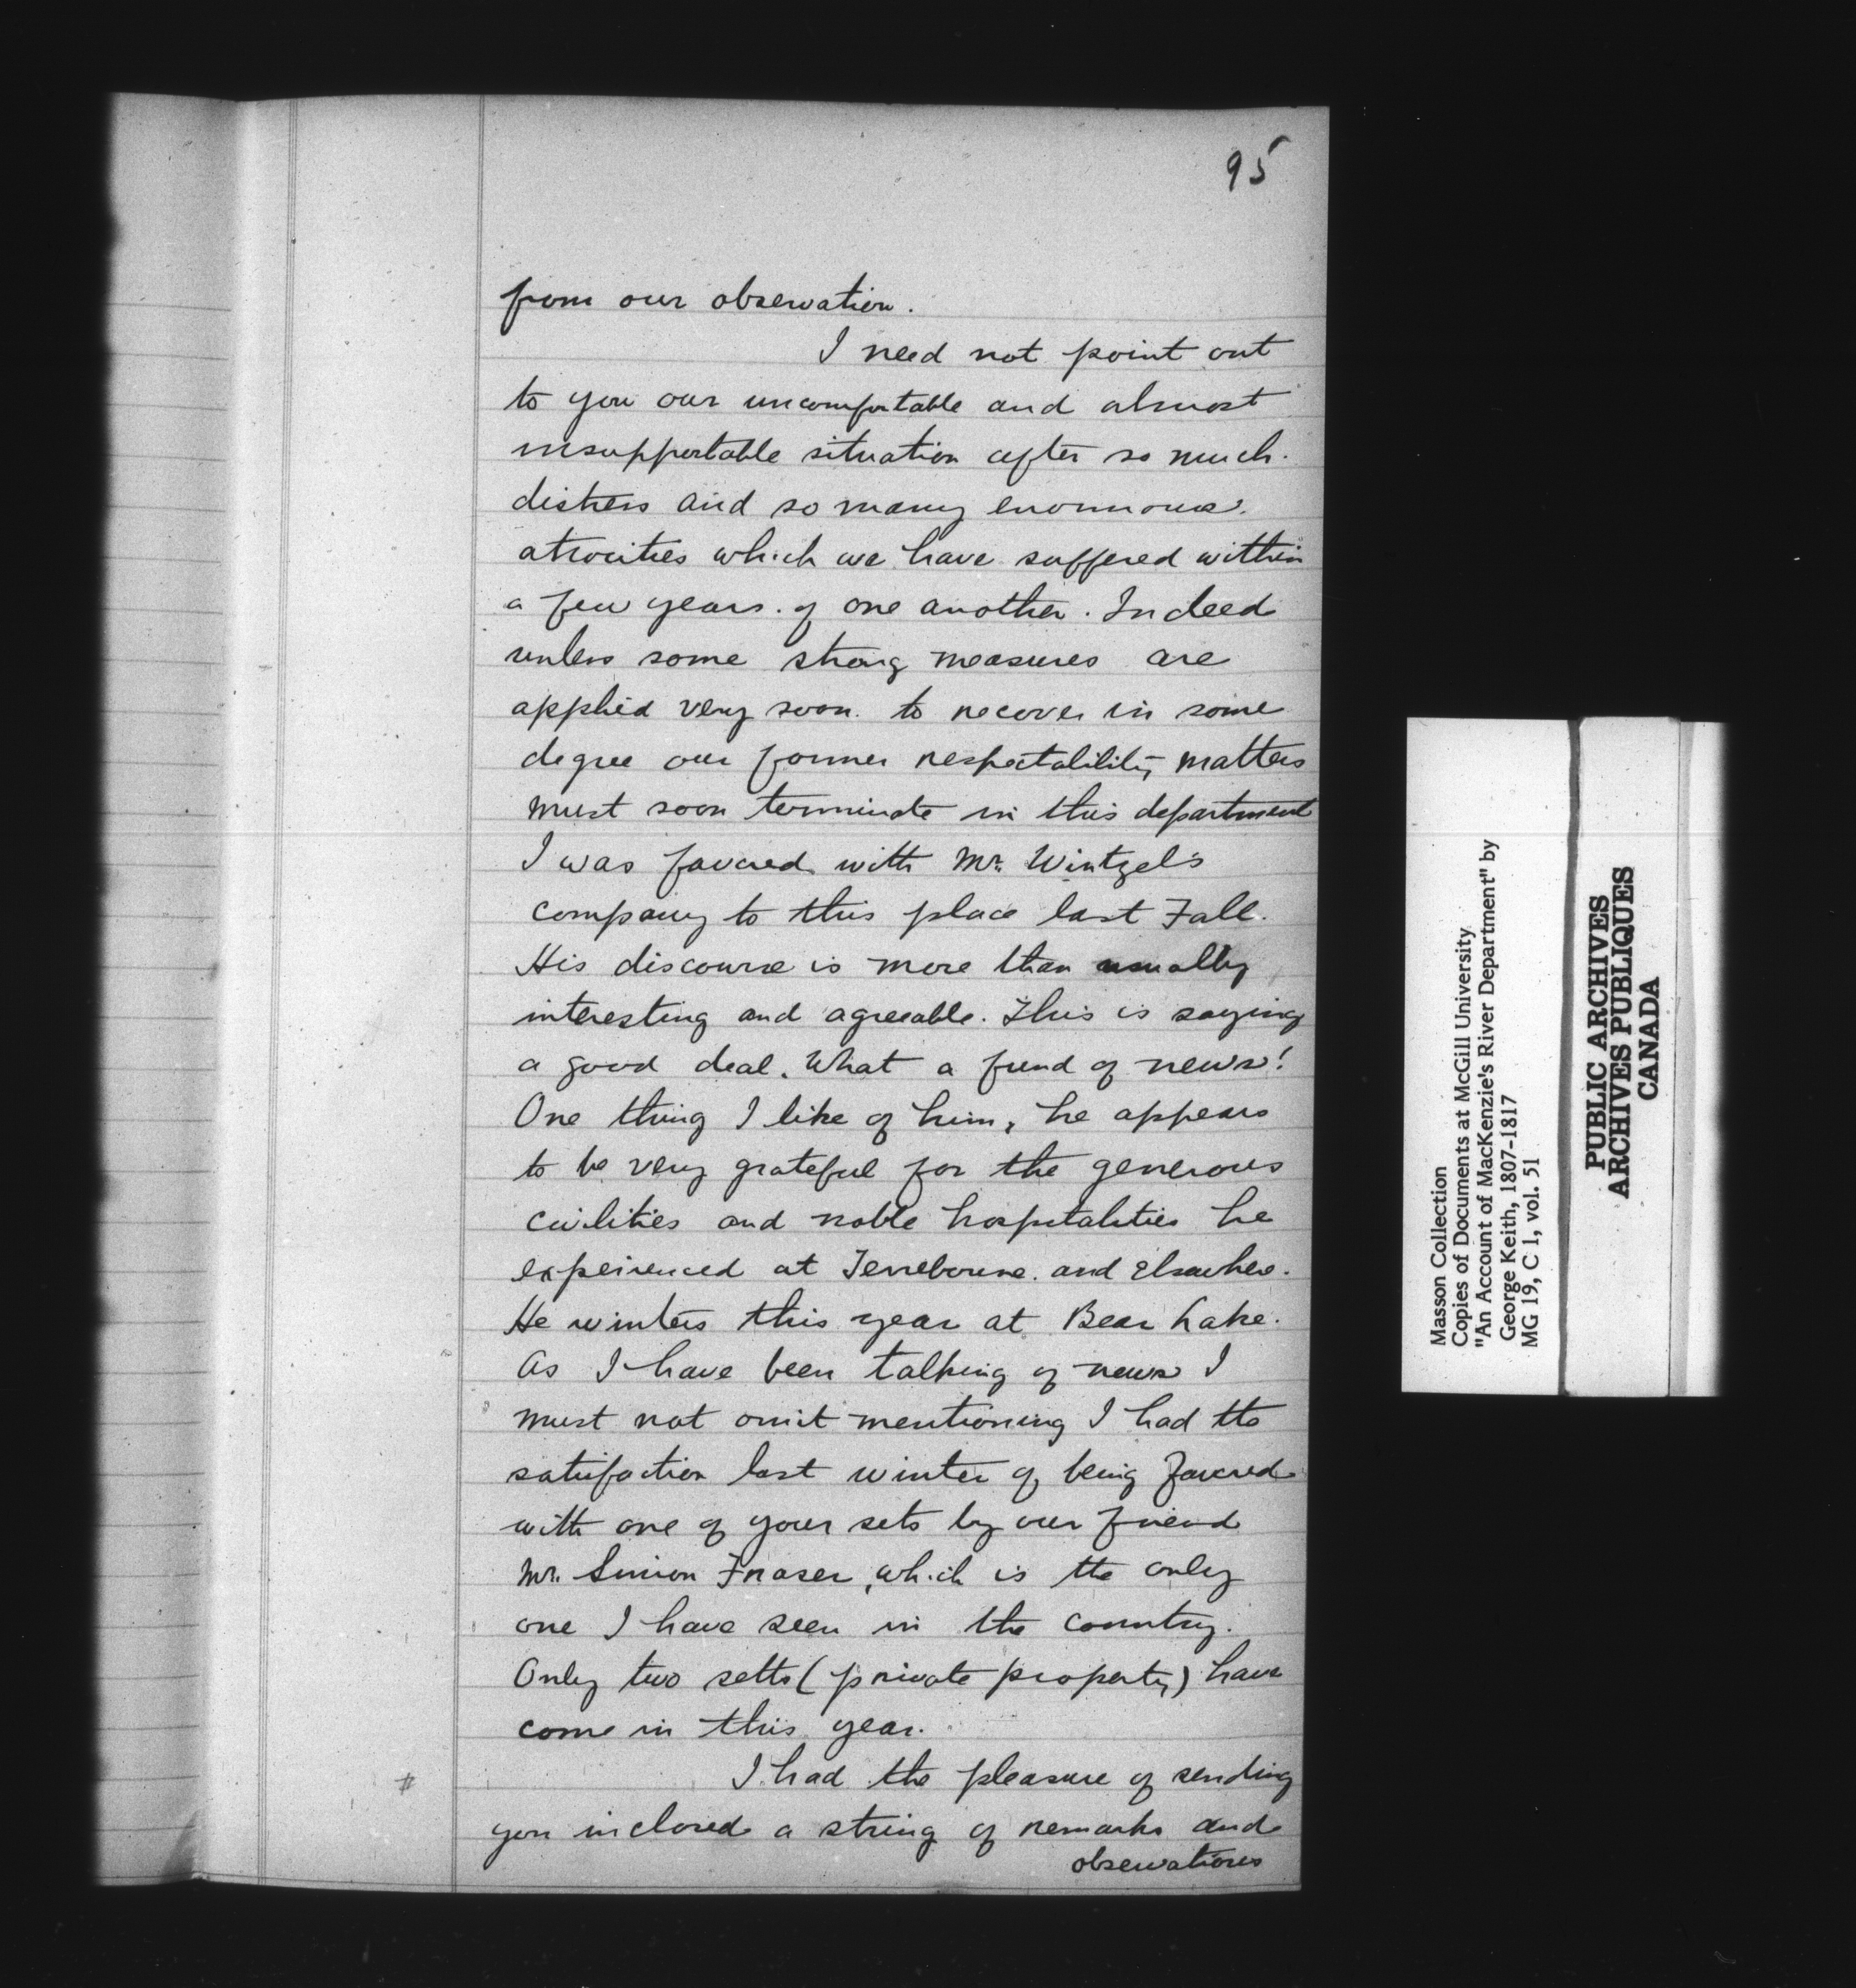 95
from our observation.
I need not point out
to you our uncomfortable and almost
insupportable situation after so much
distress and so many enormous
atrocities which we have suffered within
a few years of one another. Indeed
unless some strong measures are
applied very soon to recover in some
degree our former respectability, matters
must soon terminate in this department
I was favored with Mr. Wintzel's
company to this place last Fall.
His discourse is more than usually
interesting and agreeable. This is saying
a good deal. What a fund of news!
One thing I like of him, he appears
to be very grateful for the generous
civilities and noble hospitalities he
experienced at Terrebonne and elsewhere.
He winters this year at Bear Lake.
As I have been talking of news I
must not omit mentioning I had the
satisfaction last winter of being favored
with one of your sets by our friend
Mr. Simon Fraser, which is the only
one I have seen in the country.
Only two setts (private property) have
come in this year.
# I had the pleasure of sending
you inclosed a string of remarks and
observations
Masson Collection
Copies of Documents at McGill University
"An Account of MacKenzie's River Department" by
George Keith, 1807-1817
MG 19, C 1, vol. 51
PUBLIC ARCHIVES
ARCHIVES PUBLIQUES
CANADA